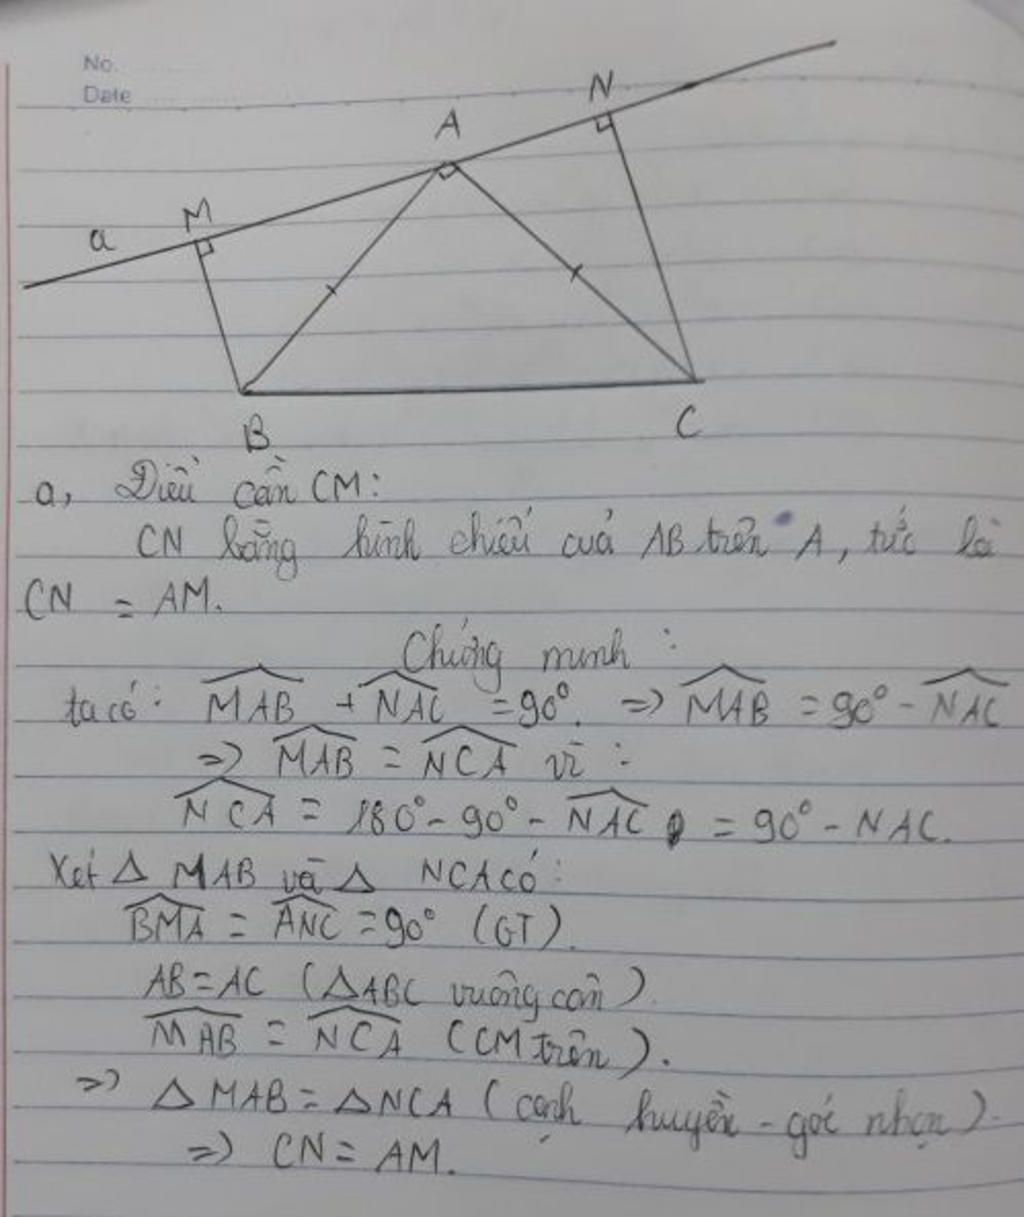 No.
Date
A
N
M
a
B
C
a, Điều cần CM:
CN bằng hình chiếu của AB trên A, tức là
CN = AM.
Chứng minh :
ta có: MAB + NAC = 90°. => MAB = 90° - NAC
=> MAB = NCA vì :
NCA = 180° - 90° - NAC = 90° - NAC.
Xét △ MAB và △ NCA có:
BMA = ANC = 90° (GT).
AB = AC (△ABC vuông cân).
MAB = NCA (CM trên).
=> △ MAB = △NCA (cạnh huyền - góc nhọn).
=> CN = AM.